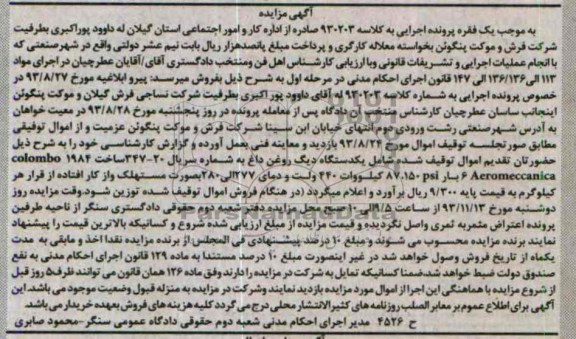 آگهی مزایده
به موجب یک فقره پرونده اجرایی به کلاسه ۹۳۰۲۰۳ صادره از اداره کار و امور اجتماعی استان گیلان له داوود پوراکبری بطرفیت
شرکت فرش و موکت پنگوئن بخواسته معادله کارگری و پرداخت مبلغ پانصدهزار ریال بابت نیم عشر دولتی واقع در شهرصنعتی که
با انجام عملیات اجرایی و تشریفات قانونی و با ارزیابی کارشناس اهل فن ومنتخب دادگستری آقای/آقایان عطرچیان در اجرای مواد
۱۱۳ الی ۱۳۶/۱۳۶ الی ۱۴۷ قانون اجرای احکام مدنی در مرحله اول به شرح ذیل بفروش میرسد: پیرو ابلاغیه مورخ ۹۳/۸/۲۷ در
خصوص پرونده اجرایی به شماره کلاسه ۹۳۰۲۰۳ له آقای داوود پور اکبری بطرفیت شرکت نساجی فرش گیلان و موکت پنگوئن
اینجانب ساسان عطرچیان کارشناس منتخب آن دادگاه پس از معامله پرونده در روز پنجشنبه مورخ ۹۳/۸/۲۸ در معیت خواهان
به آدرس شهرصنعتی رشت ورودی دوم انتهای خیابان ابن سینا شرکت فرش و موکت پنگوئن عزمیت و از اموال توقیفی
مطابق صورتجلسه توقیف اموال مورخ ۹۳/۸/۲۴ بازدید و معاینه فنی بعمل آورده و گزارش کارشناسی خود را به شرح ذیل
حضورتان تقدیم اموال توقیف شده شامل یکدستگاه دیگ روغن داغ به شماره سریال ۳۴۷-۲۰ ساخت ۱۹۸۴ colombo
Aeromeccanica ۶ بار ۸۷،۱۵۰ psi کیلووات ۴۴۰ ولت و دمای ۲۷۷الی۲۸۰بصورت مستهلک واز کار افتاده از قرار هر
کیلوگرم به قیمت پایه ۹/۳۰۰ ریال برآورد و اعلام میگردد (در هنگام فروش اموال توقیف شده توزین شود. وقت مزایده روز
دوشنبه مورخ ۹۳/۱۱/۱۳ از ساعت ۹/۵ الی ۱۰ صبح محل مزایده دفتر شعبه دوم حقوقی دادگستری سنگر از ناحیه طرفین
پرونده اعتراض مثمربه ثمری واصل نگردیده و قیمت مزایده از مبلغ ارزیابی شده شروع و کسانیکه بالاترین قیمت را پیشنهاد
نمایند برنده مزایده محسوب می شوند و مبلغ ۱۰ درصد پیشنهادی فی المجلس از برنده مزایده نقدا اخذ و مابقی به مدت
یکماه از تاریخ فروش وصول خواهد شد در غیر اینصورت مبلغ ۱۰ درصد مستندا به ماده ۱۲۹ قانون اجرای احکام مدنی به نفع
صندوق دولت ضبط خواهد شد.ضمنا کسانیکه تمایل به شرکت در مزایده را دارند وفق ماده ۱۲۶ همان قانون می توانند ظرف۵ روز قبل
از شروع مزایده با هماهنگی این اجرا از اموال مورد مزایده بازدید نمایند وشرکت در مزایده به منزله قبول وضعیت موجود می باشد. این
آگهی برای اطلاع عموم بر معابر الصلب روزنامه های کثیرالانتشار محلی درج می گردد کلیه هزینه های فروش بعهده خریدار می باشد.
ح ۴۵۲۶ مدیر اجرای احکام مدنی شعبه دوم حقوقی دادگاه عمومی سنگر-محمود صابری